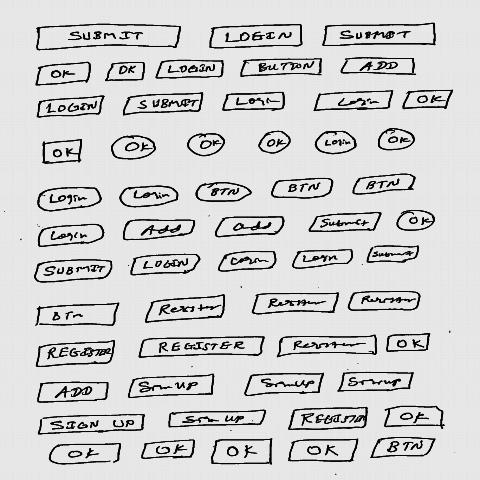 SUBMIT LOGIN SUBMIT
OK OK LOGIN BUTTON ADD
LOGIN SUBMIT Login Login OK
OK OK OK OK Login OK
Login Login BTN BTN BTN
Login Add add Submit OK
SUBMIT LOGIN Login Login Submit
BTn Register Register Register
REGISTER REGISTER Register OK
ADD SignUp SignUp Signup
SIGN UP Sign UP REGISTER OK
OK OK OK OK BTN